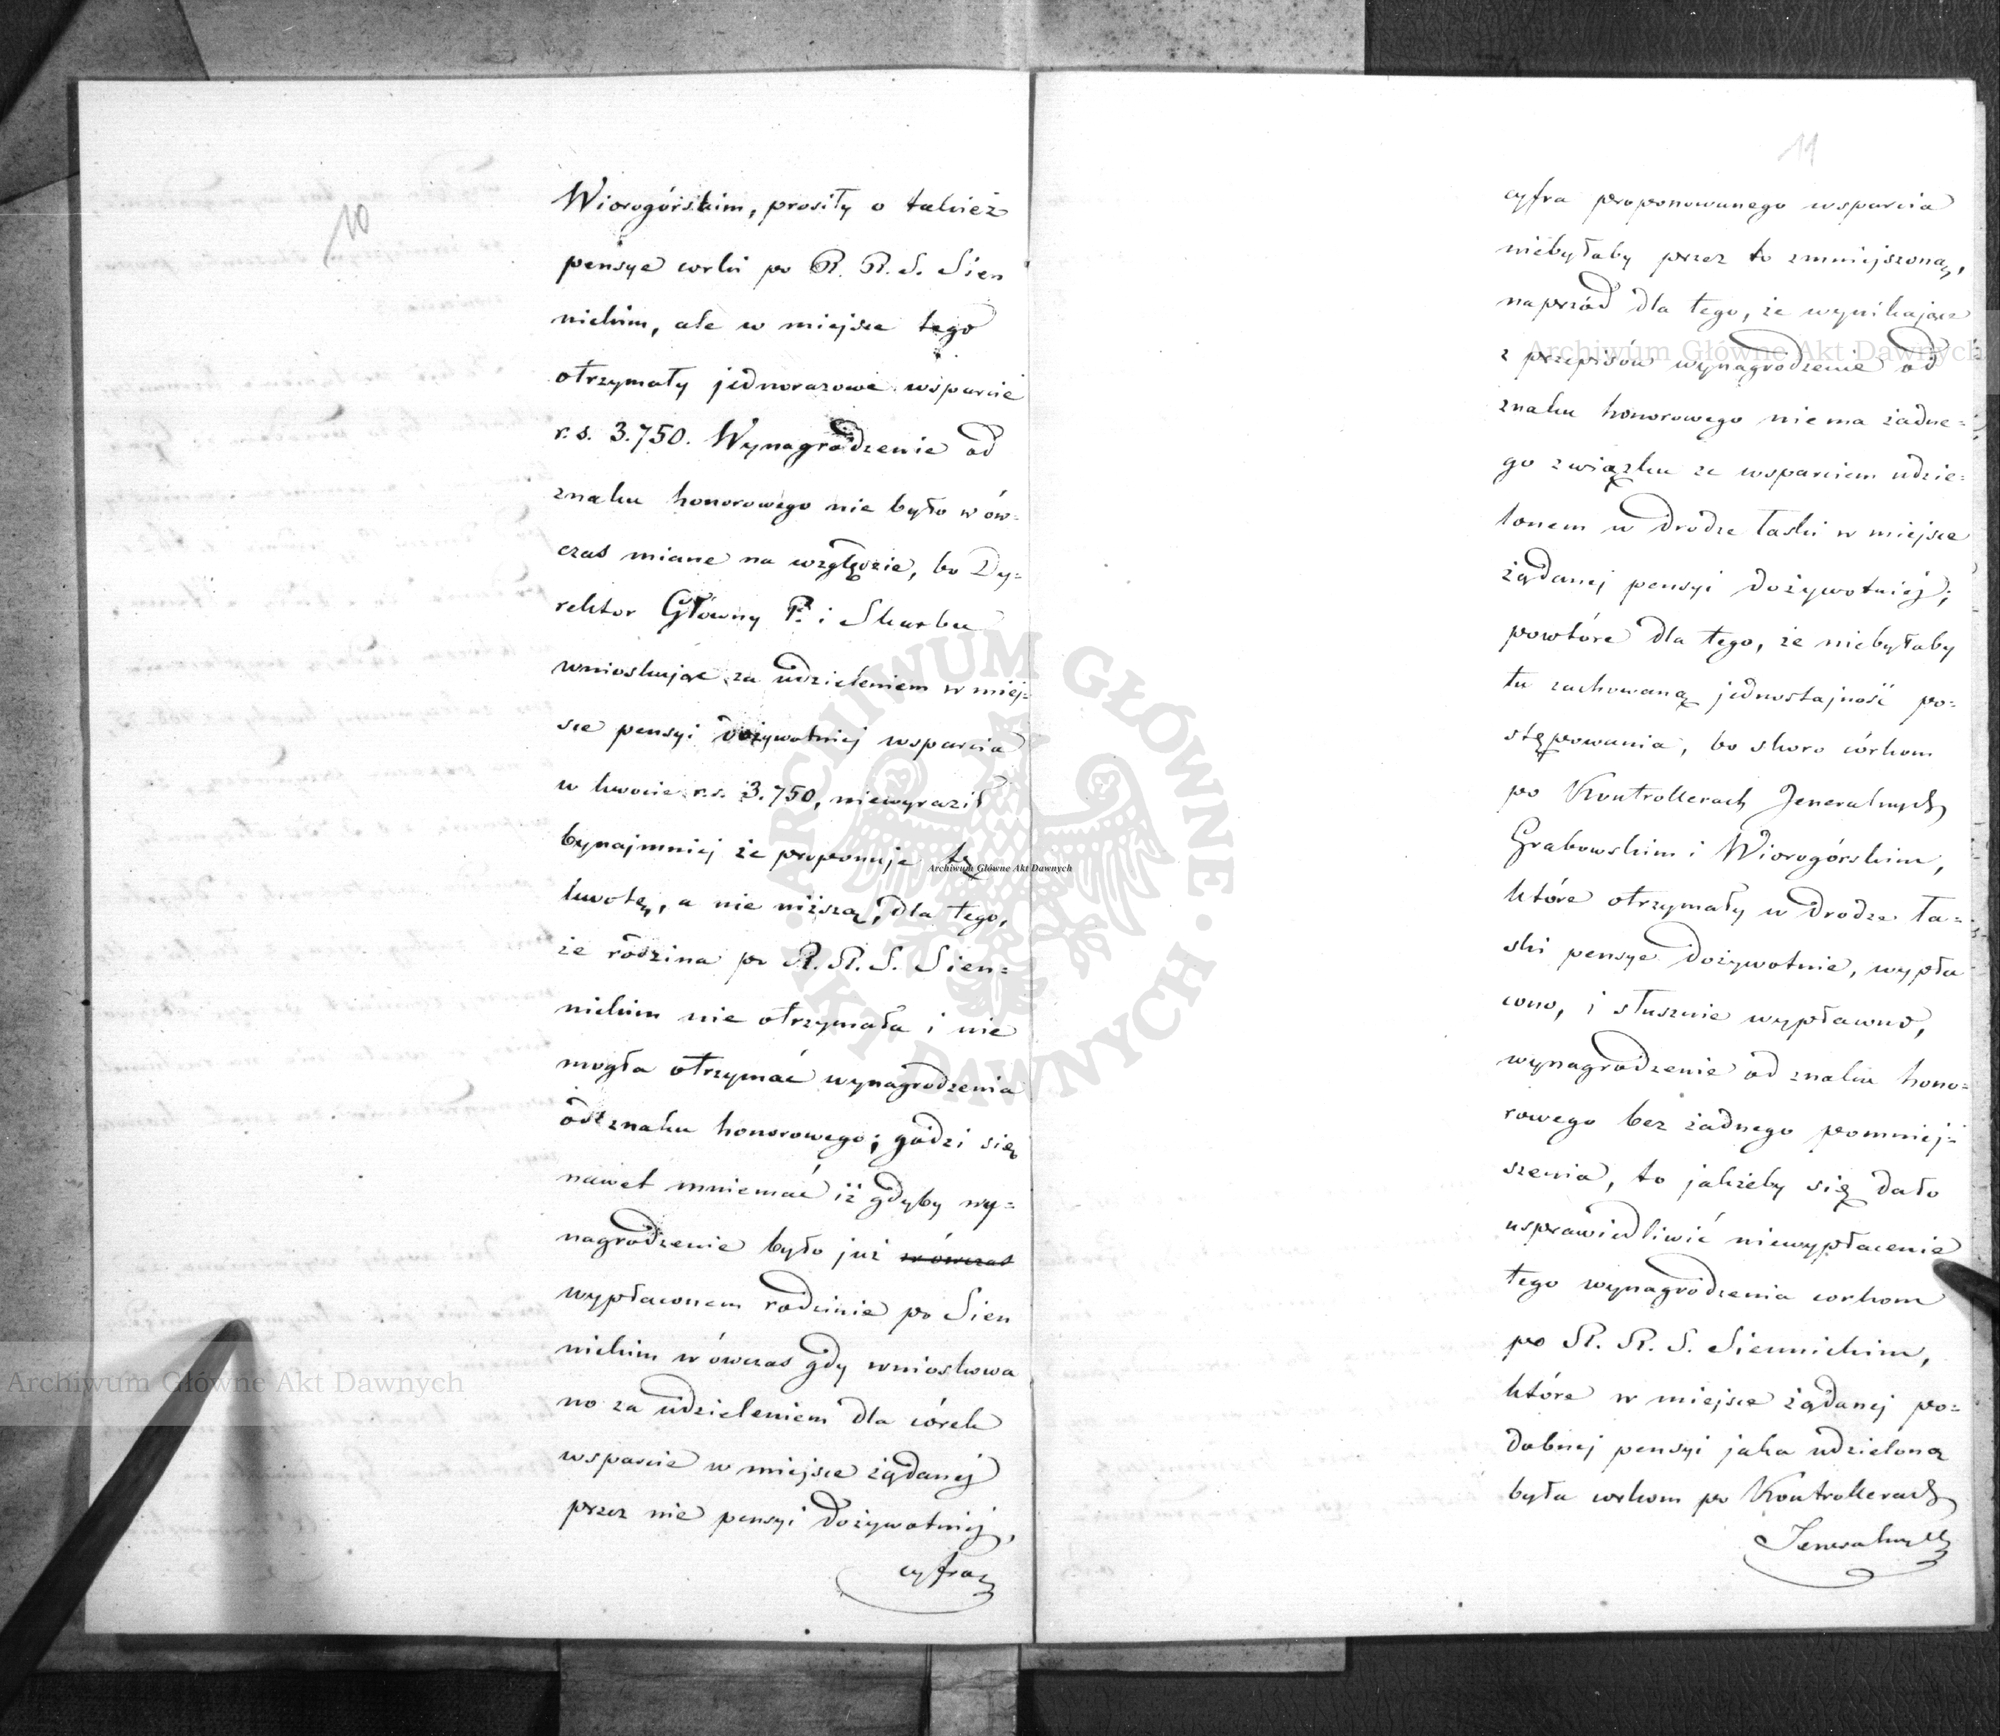 10
Wiorogórskim, prosiły o takież
pensye córki po R. R. S. Sien
nickim, ale w miejsce tego
otrzymały jednorazowe wsparcie
r. s. 3.750. Wynagrodzenie od
znaku honorowego nie było wów-
czas miane na względzie, bo Dy-
rektor Główny P. i Skarbu
wnioskując za udzieleniem w miej-
sce pensyi dożywotniej wsparcia
w kwocie r.s. 3.750, niewyraził
bynajmniej że proponuje tę
kwotę, a nie niższą, dla tego,
że rodzina po R. R. S. Sien-
nickim nie otrzymała i nie
mogła otrzymać wynagrodzenia
od znaku honorowego; godzi się
nawet mniemać iż gdyby wy-
nagrodzenie było już wówczas
wypłaconem rodzinie po Sien
nickim wówczas gdy wnioskowa
no za udzieleniem dla córek
wsparcie w miejsce żądanej
przez nie pensyi dożywotniej,
cyfra
11
cyfra proponowanego wsparcia
niebyłaby przez to zmniejszoną,
naprzód dla tego, że wynikające
z przepisów wynagrodzenie od
znaku honorowego niema żadne-
go związku ze wsparciem udzie-
lonem w drodze łaski w miejsce
żądanej pensyi dożywotniej;
powtóre dla tego, że niebyłaby
tu zachowaną jednostajność po-
stępowania, bo skoro córkom
po Kontrollerach Jeneralnych
Grabowskim i Wiorogórskim,
które otrzymały w drodze ła-
ski pensye dożywotnie, wypła
cono, i słusznie wypłacono,
wynagrodzenie od znaku hono-
rowego bez żadnego pomniej-
szenia, to jakżeby się dało
usprawiedliwić niewypłacenie
tego wynagrodzenia córkom
po R. R. S. Siennickim,
które w miejsce żądanej po-
dobnej pensyi jaka udzieloną
była córkom po Kontrollerach
Jeneralnych
Archiwum Główne Akt Dawnych
Archiwum Główne Akt Dawnych
Archiwum Główne Akt Dawnych
ARCHIWUM GŁÓWNE · AKT DAWNYCH ·